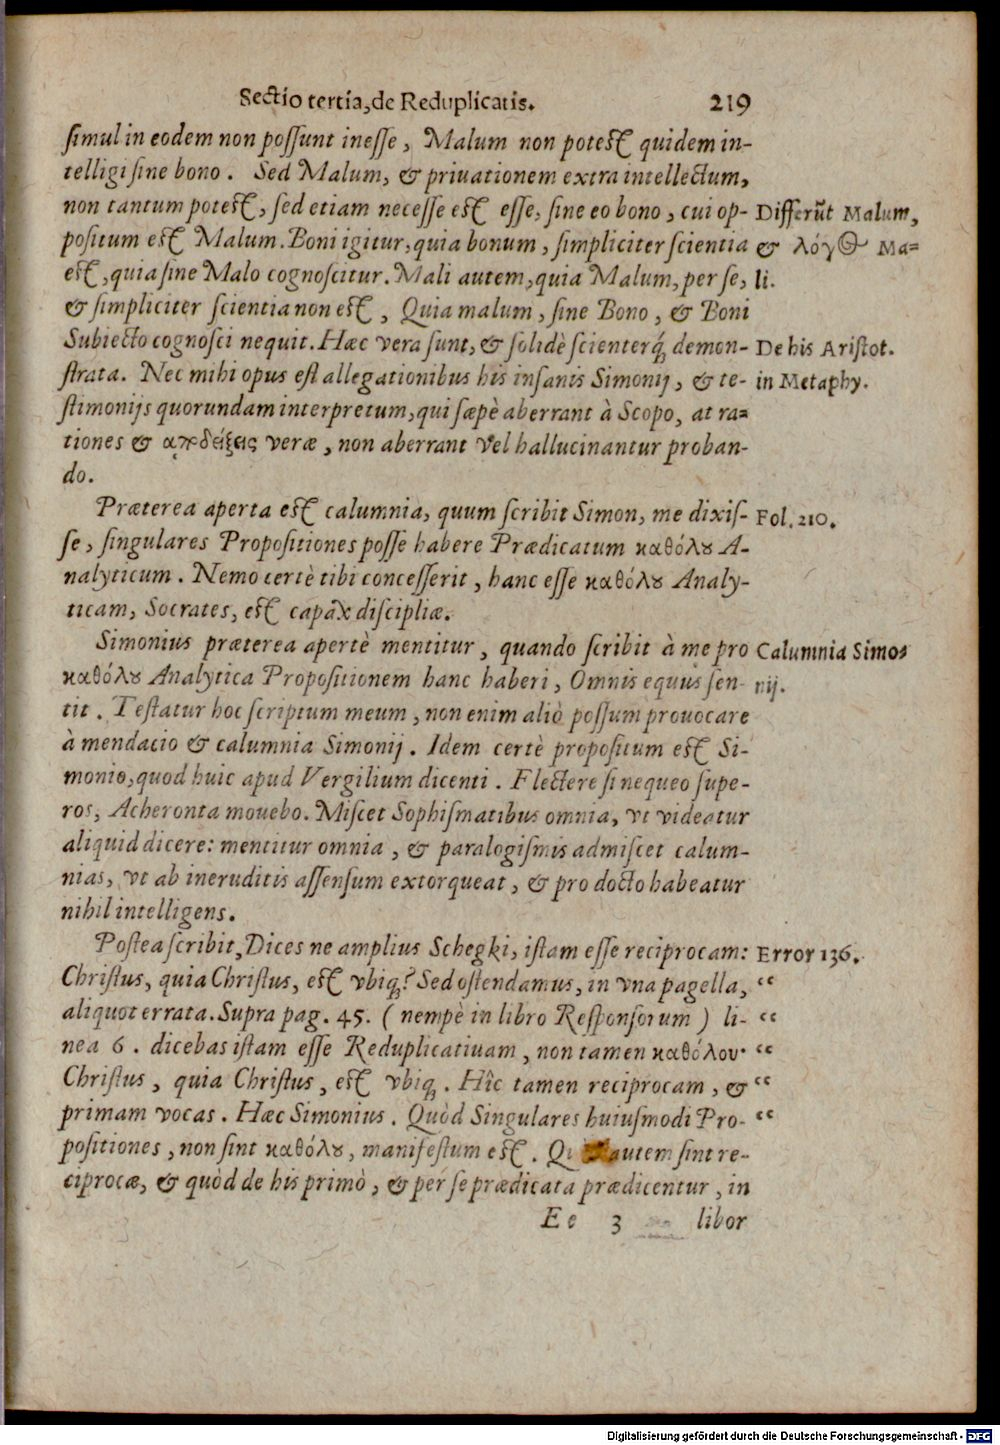 Sectio tertia, de Reduplicatis. 219
simul in eodem non possunt inesse, Malum non potest quidem in-
telligi sine bono. Sed Malum, & priuationem extra intellectum,
non tantum potest, sed etiam necesse est esse, sine eo bono, cui op-
Differūt Malum,
positum est Malum. Boni igitur, quia bonum, simpliciter scientia
& λόγος Ma=
est, quia sine Malo cognoscitur. Mali autem, quia Malum, per se,
li.
& simpliciter scientia non est, Quia malum, sine Bono, & Boni
Subiecto cognosci nequit. Hæc vera sunt, & solidè scienterq́; demon-
De his Aristot.
strata. Nec mihi opus est allegationibus his insanis Simonij, & te-
in Metaphy.
stimonijs quorundam interpretum, qui sæpè aberrant à Scopo, at ra=
tiones & ἀποδείξεις veræ, non aberrant vel hallucinantur proban-
do.
Præterea aperta est calumnia, quum scribit Simon, me dixis-
Fol. 210.
se, singulares Propositiones posse habere Prædicatum καθόλȣ A-
nalyticum. Nemo certè tibi concesserit, hanc esse καθόλȣ Analy-
ticam, Socrates, est capax discipliæ.
Simonius præterea apertè mentitur, quando scribit à me pro
Calumnia Simo=
καθόλȣ Analytica Propositionem hanc haberi, Omnis equus sen-
nij.
tit. Testatur hoc scriptum meum, non enim aliò possum prouocare
à mendacio & calumnia Simonij. Idem certè propositum est Si-
monio, quod huic apud Vergilium dicenti. Flectere si nequeo supe-
ros, Acheronta mouebo. Miscet Sophismatibus omnia, vt videatur
aliquid dicere: mentitur omnia, & paralogismis admiscet calum-
nias, vt ab ineruditis assensum extorqueat, & pro docto habeatur
nihil intelligens.
Postea scribit, Dices ne amplius Schegki, istam esse reciprocam:
Error 136.
Christus, quia Christus, est vbiq;? Sed ostendamus, in vna pagella, “
aliquot errata. Supra pag. 45. (nempè in libro Responsorum) li- “
nea 6. dicebas istam esse Reduplicatiuam, non tamen καθόλου· “
Christus, quia Christus, est vbiq;. Hîc tamen reciprocam, & “
primam vocas. Hæc Simonius. Quòd Singulares huiusmodi Pro- “
positiones, non sint καθόλȣ, manifestum est. autem sint re-
ciprocæ, & quòd de his primò, & per se prædicata prædicentur, in
Ee 3 libor
Digitalisierung gefördert durch die Deutsche Forschungsgemeinschaft - DFG